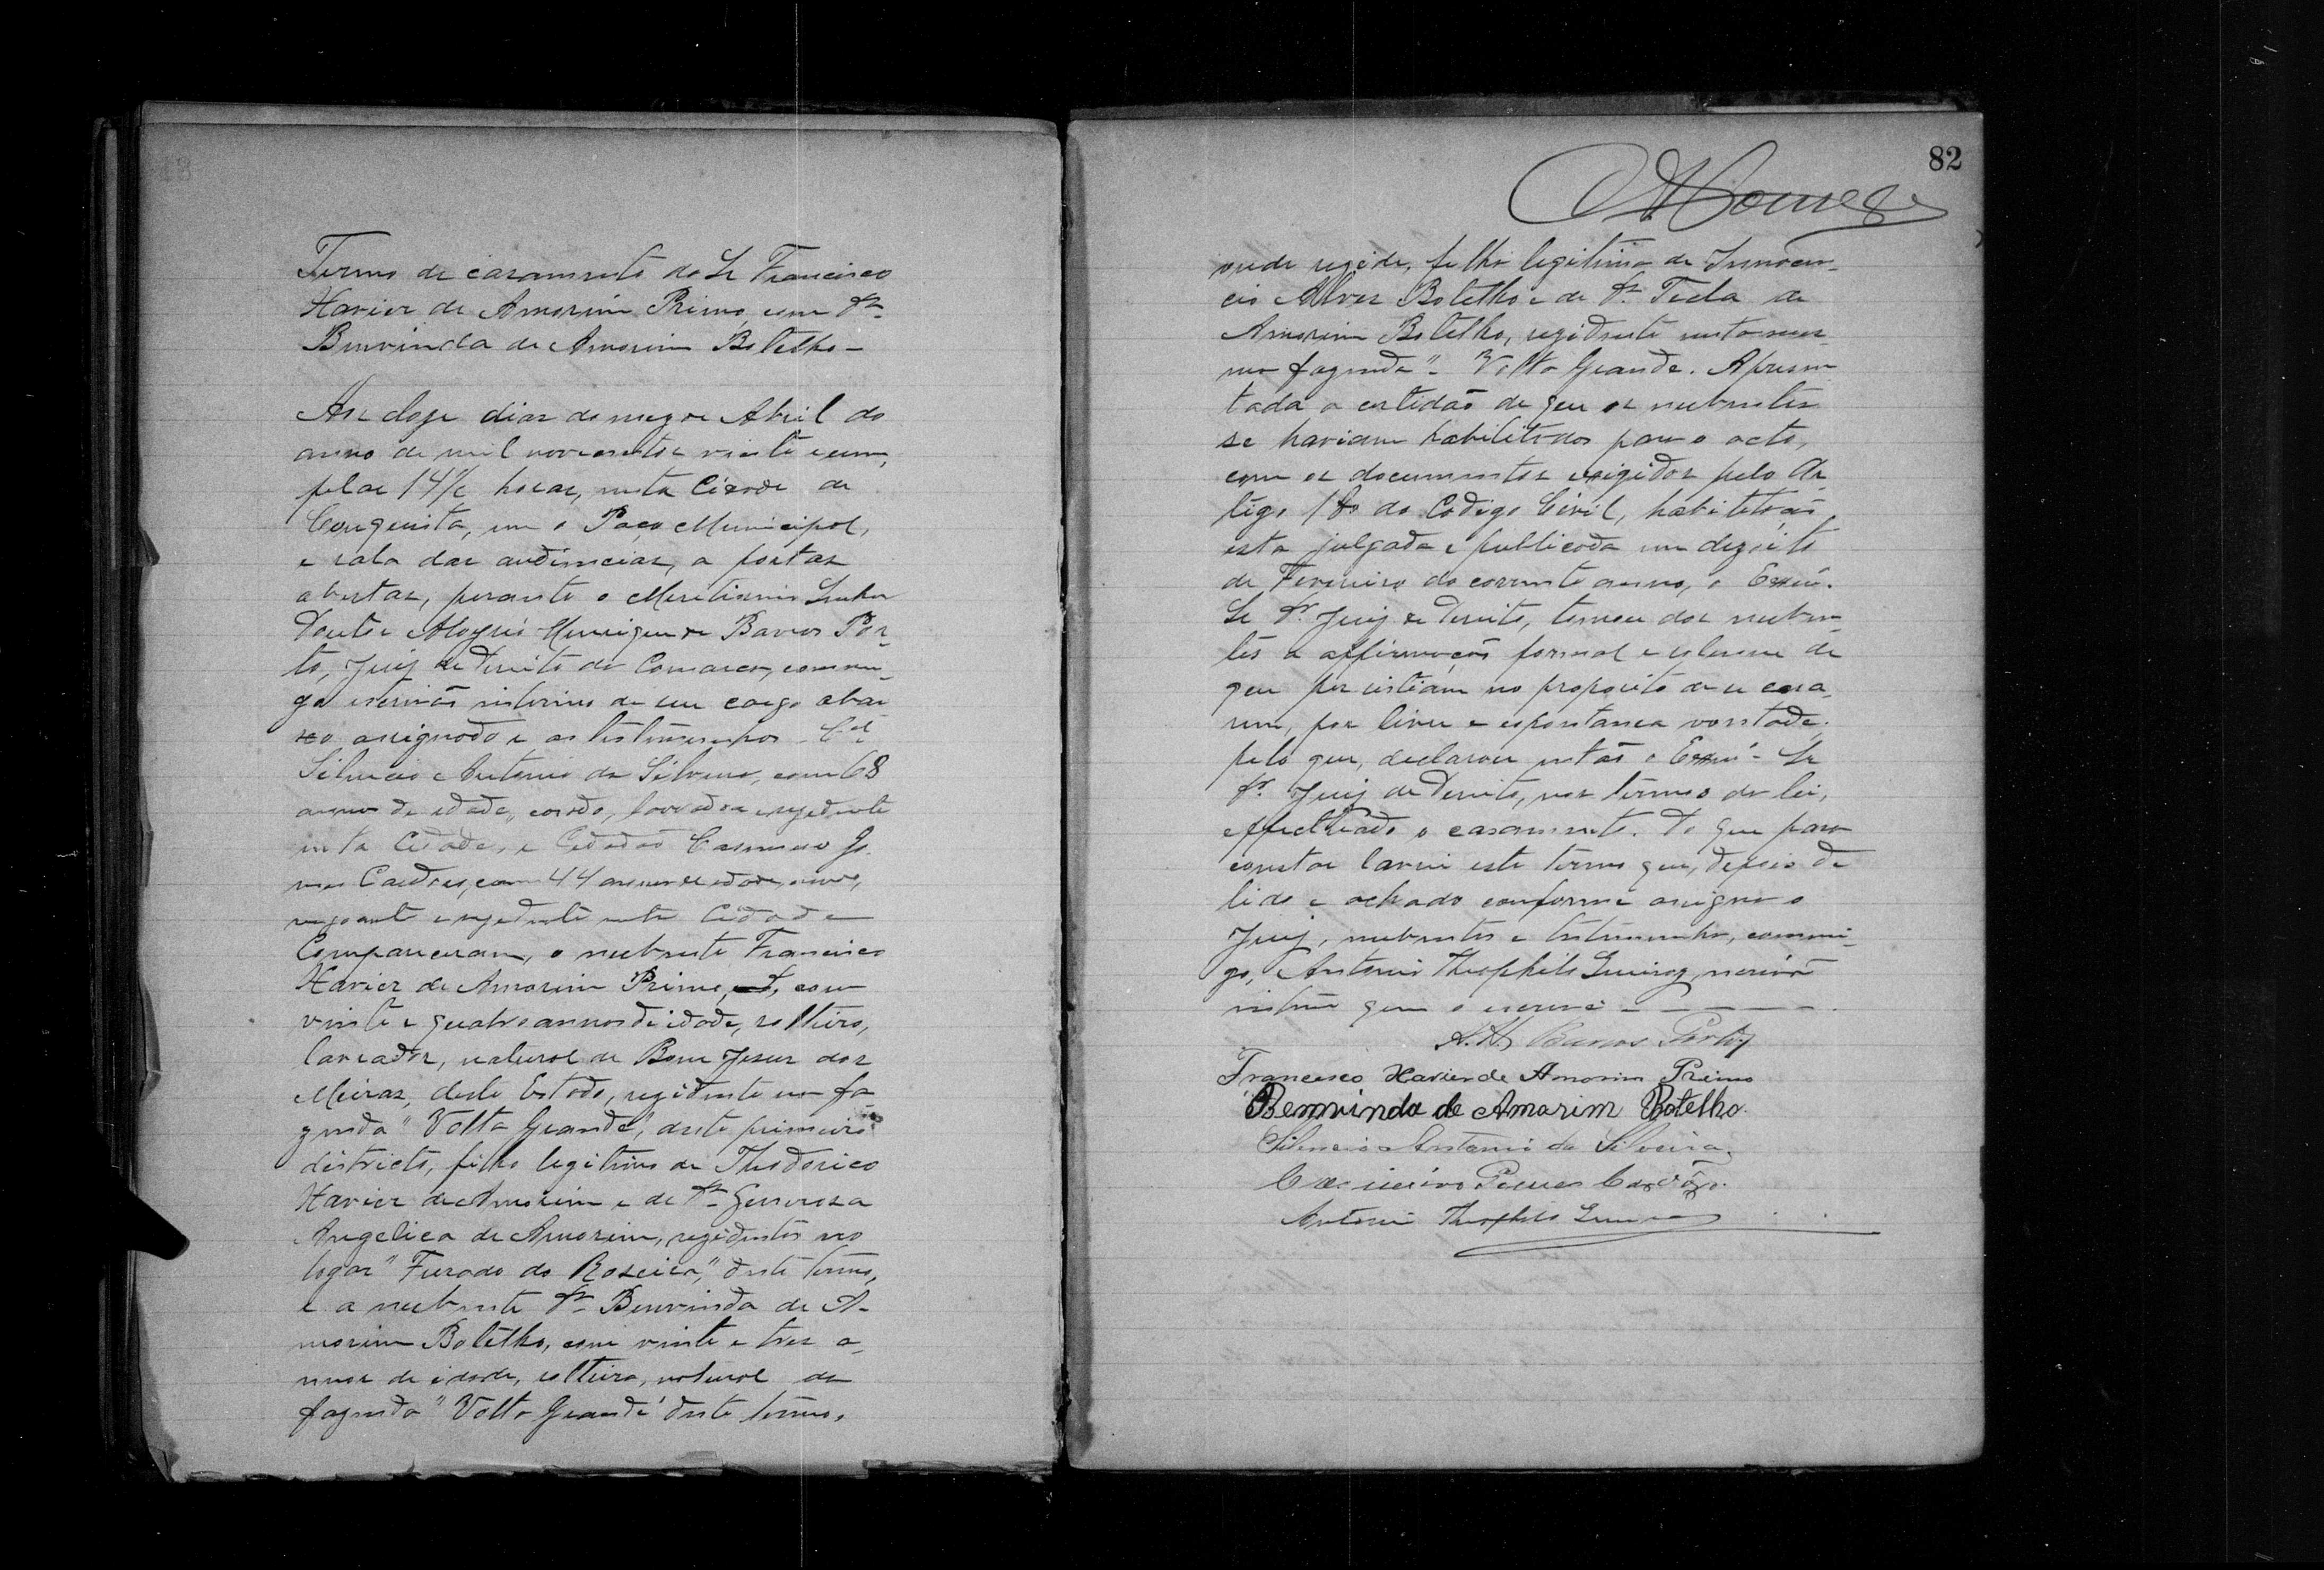 Termo de casamento do Sr Francisco
Xavier de Amorim Primo, com Dª
Benvinda de Amorim Botelho –
Aos doze dias do mez de Abril do
anno de mil novecentos vinte e um,
pelas 14½ horas, nesta Cidade de
Conquista, em o Paço Municipal,
e sala das audiencias, a portas
abertas, perante o Meretissimo Senhor
Doutor Aloysio Henrique de Barros Por-
to, Juiz de Direito da Comarca, commi-
go escrivão interino de seu cargo abai
xo assignado e as testimunhas Cel
Silverio Antonio da Silveira, com 68
annos de edade, casado, lavrador e rezidente
nesta Cidade, e Cidadão Casemiro
Cardoso, com 44 annos de edade,
negociante e rezidente nesta Cidade
Compareceram, o nubente Francisco
Xavier de Amorim Primo, com
vinte e quatro annos de idade, solteiro,
lavrador, natural de Bom Jesus dos
Meiras, deste Estado, rezidente em fa-
zenda "Volta Grande", deste primeiro
districto, filho legitimo de Theodorico
Xavier de Amorim e de Dª Generoza
Angelica de Amorim, rezidentes no
logar "Furado da Roseira," deste termo,
e a nubente Dª Benvinda de A-
morim Botelho, com vinte e tres a-
nnos de idade, solteira, natural da
fazenda "Volta Grande" deste termo,
82
onde rezide, filha legitima de Innocen-
cio Alves Botelho e de Dª Tecla de
Amorim Botelho, rezidente nesta mes-
ma fazenda "Volta Grande. Apresen
tada a certidão de que os nubentes
se haviam habilitados para o acto,
com os documentos exigidos pelo Ar
tigo 180 do Codigo Civil, habilitação
esta julgada e publicada em dezoito
de Fevereiro do corrente anno, o Exmº
Sr Dr Juiz de Direito, tomou dos nuben-
tes a affirmação formal e solemne de
que persistiam no proposito de se casa-
rem, por livre e espontanea vontade.
pelo que, declarou então o Exmº Sr
Dr Juiz de Direito, nos termos da lei,
effectuado o casamento. Do que para
constar lavrei este termo que, depois de
lido e achado conforme assigna o
Juiz, nubentes e testimunhas, commi-
go, Antonio Theophilo escrivão
interino que o escrevi –
A. H. Barros Porto
Francisco Xavier de Amorim Primo
Benvinda de Amorim Botelho.
Silverio Antonio da Silveira.
Casimiro Cardoso.
Antonio Theophilo